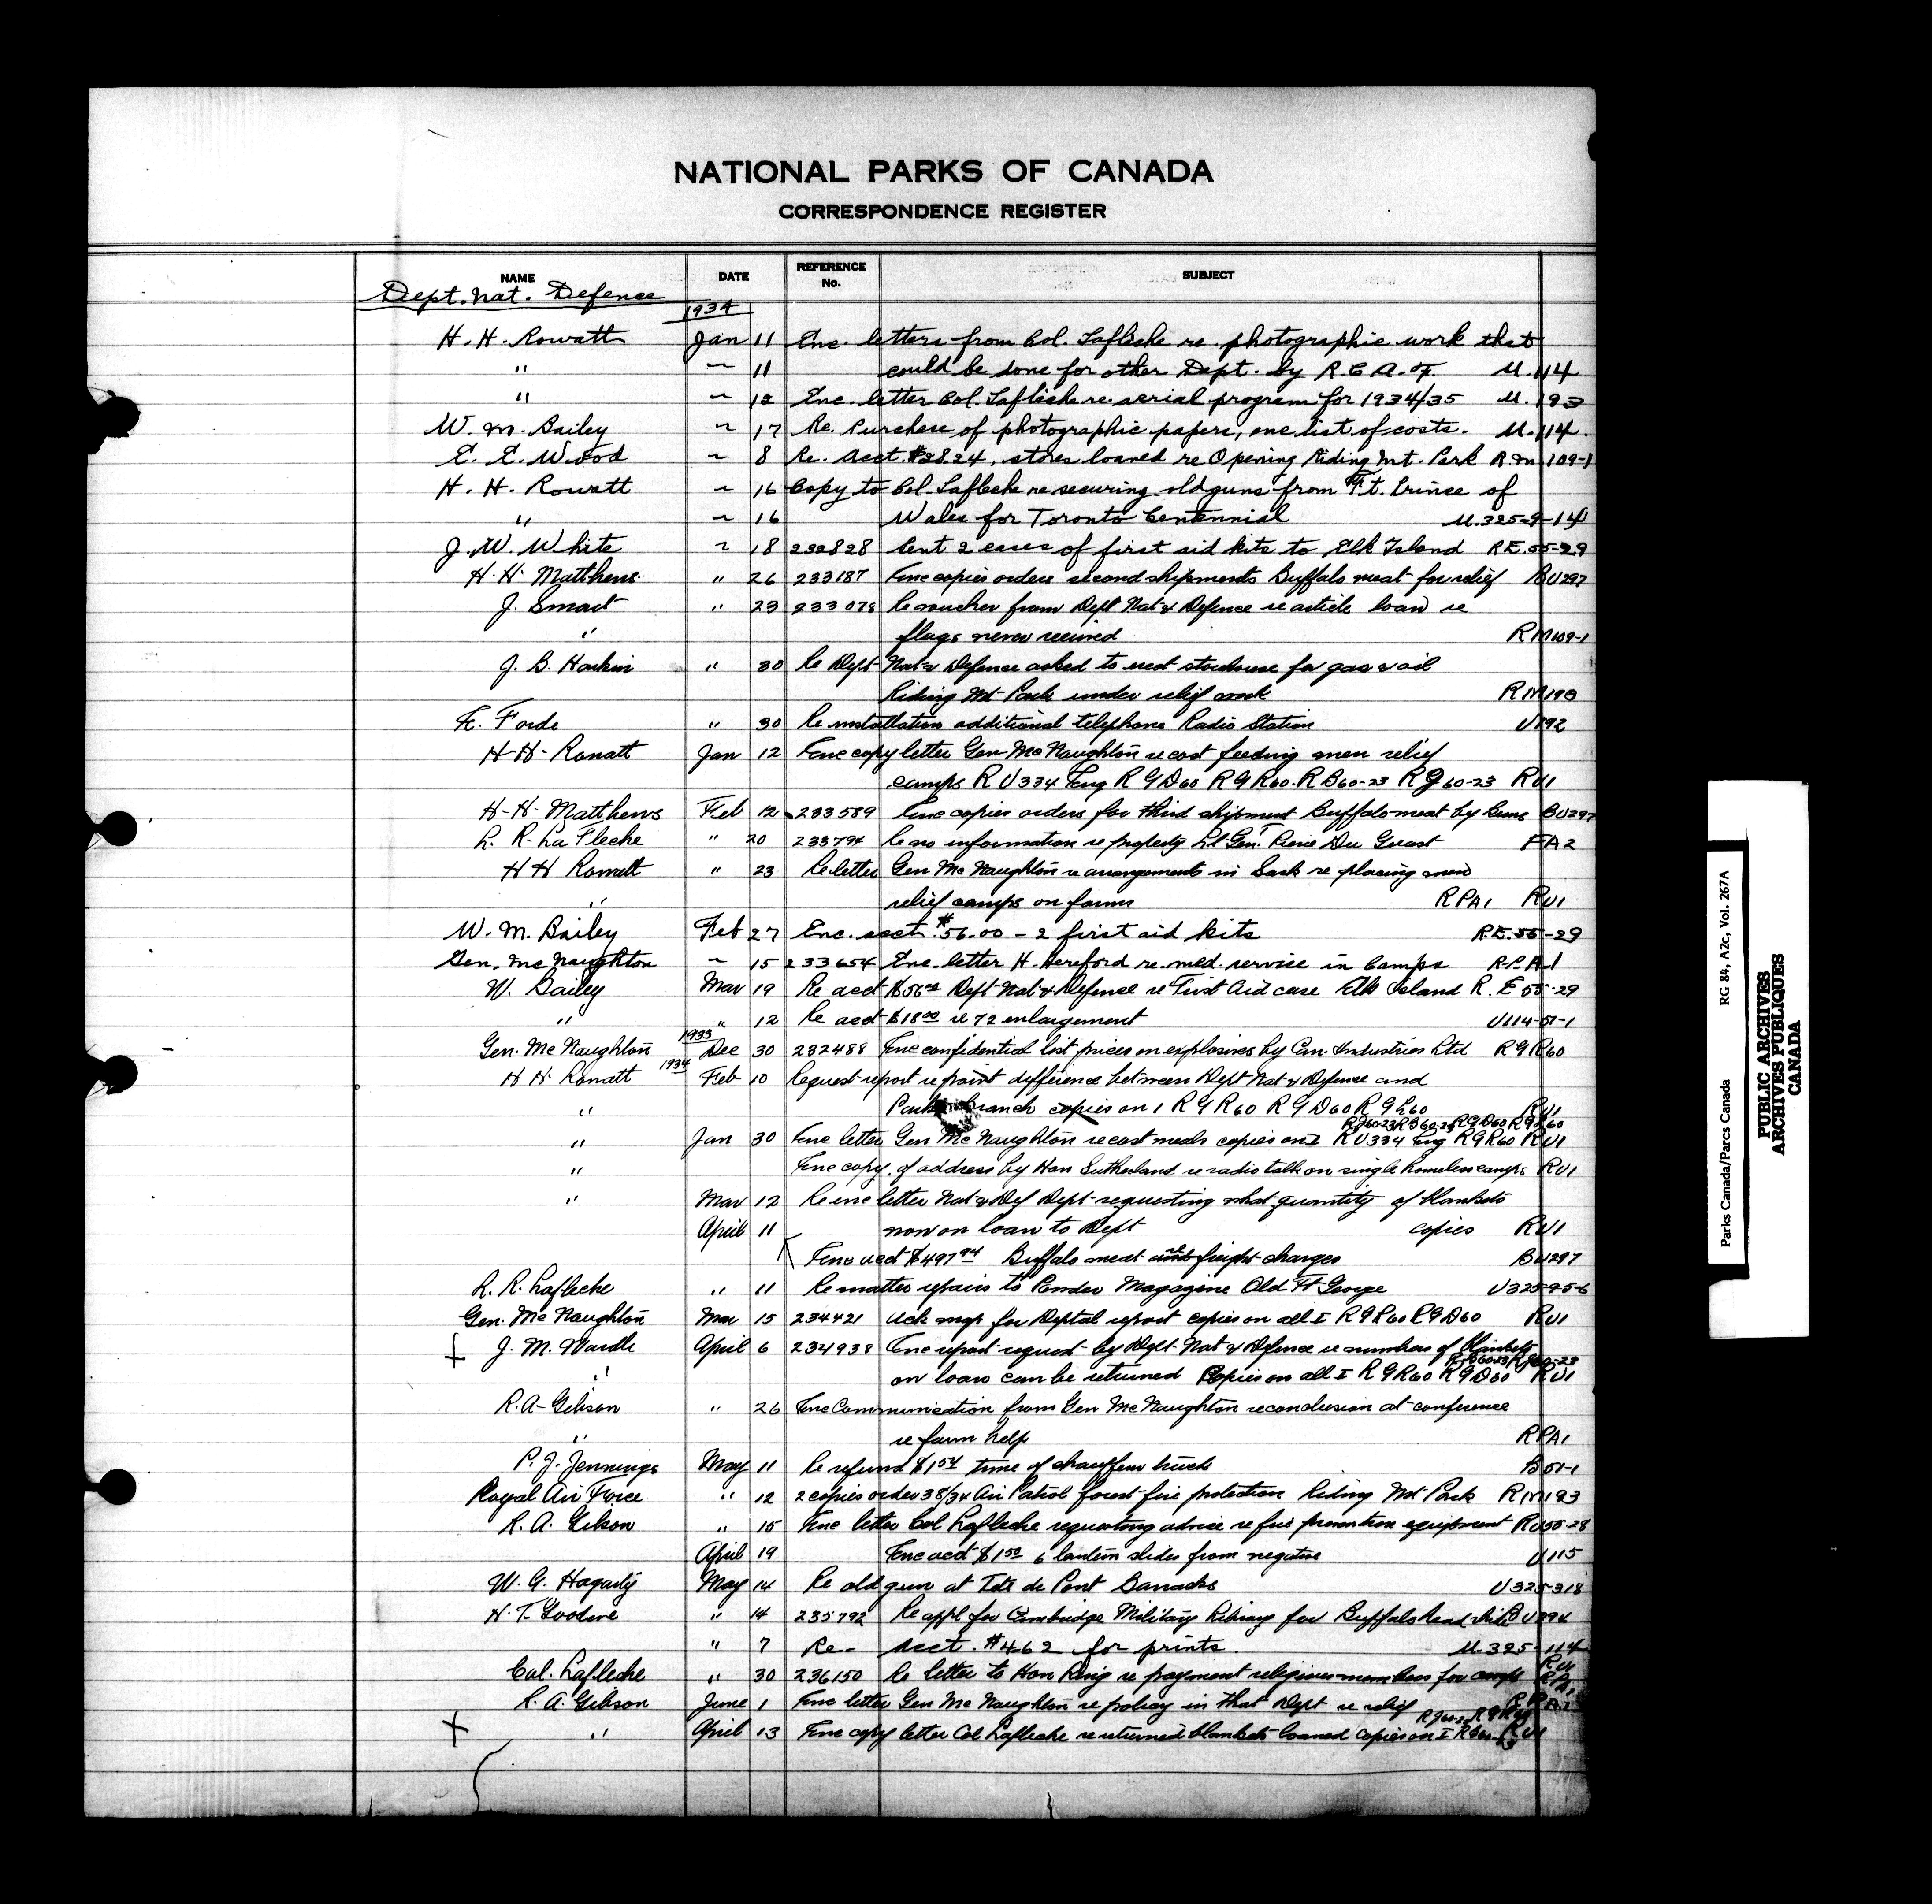 NATIONAL PARKS OF CANADA
CORRESPONDENCE REGISTER
NAME DATE REFERENCE No. SUBJECT
Dept. Nat. Defence
1934
H. H. Rowatt Jan 11 Enc. letters from Col. Lafleche re. photographic work that
" ~ 11 could be done for other Dept. by R.C.A.F. U.114
" ~ 12 Enc. letter Col. Lafleche re aerial program for 1934/35 U.193
W. M. Bailey ~ 17 Re. Purchase of photographic papers, enc list of costs. U.114.
E. E. Wood ~ 8 Re. Acct. $28.24, stores loaned re Opening Riding Mt. Park R.M. 109-1
H. H. Rowatt ~ 16 Copy to Col. Lafleche re securing old guns from Ft. Prince of
" ~ 16 Wales for Toronto Centennial U.325-9-14
J. W. White ~ 18 232828 Sent 2 cases of first aid kits to Elk Island R.E. 55-29
H. H. Matthews " 26 233187 Enc copies orders second shipments Buffalo meat for relief BU297
J. Smart " 23 233078 Re voucher from Dept Nat'l Defence re article loan re
" flags never received RM109-1
J. B. Harkin " 30 Re Dept Nat'l Defence asked to erect storehouse for gas & oil
Riding Mt Park under relief work RM193
E. Forde " 30 Re installation additional telephone Radio Station U192
H. H. Rowatt Jan 12 Enc copy letter Gen McNaughton re cost feeding men relief
camps RU334 Eng RGD60 RGR60. RB60-23 RJ60-23 RU1
H. H. Matthews Feb 12 233589 Enc copies orders for third shipment Buffalo meat by Burns BU297
L. R. La Fleche " 20 233794 Re no information re property Lt Gen. FA2
H H Rowatt " 23 Re letter Gen McNaughton re arrangements in Sask re placing men
" relief camps on farms RPA1 RU1
W. M. Bailey Feb 27 Enc. acct. $56.00 - 2 first aid kits R.E. 55-29
Gen. McNaughton ~ 15 233654 Enc. letter H. Hereford re. med. service in Camps R.P.A.1
W. Bailey Mar 19 Re acct $56.00 Dept Nat'l Defense re First Aid case Elk Island R.E 55-29
" " 12 Re acct $18.00 re 72 enlargement U114-51-1
1933
Gen. McNaughton Dec 30 232488 Enc confidential list prices on explosives by Can. Industries Ltd RGR60
1934
H H. Rowatt Feb 10 Request report re point difference between Dept Nat'l Defence and
" Parks Branch copies on 1 RGR60 RGD60 RGL60 RU1
RJ60-23 RB60-23 RGD60 RGL60
" Jan 30 Enc letter Gen McNaughton re cost meals copies on I RU334 Eng RGR60 RU1
" Enc copy of address by Hon Sutherland re radio talk on single homeless camps RU1
" Mar 12 Re enc letter Nat'l Def Dept requesting what quantity of blankets
April 11 now on loan to Dept copies RU1
Enc acct $497.94 Buffalo meat re freight charges BU297
L. R. Lafleche " 11 Re matter repairs to Powder Magazine Old Ft George U325-9-5-6
Gen. McNaughton Mar 15 234421 Ack for Deptal report copies on all I RGR60 RGD60 RU1
J. M. Wardle April 6 234938 Enc report request by Dept Nat'l Defence re numbers of blankets
RB60-23 RJ60-23
" on loan can be returned Copies on all I RGR60 RGD60 RU1
R. A. Gibson " 26 Enc Communication from Gen McNaughton re conclusion at conference
" re farm help RPA1
P. J. Jennings May 11 Re refund $1.54 time of chauffeur truck B51-1
Royal Air Force " 12 2 copies order 38/34 Air Patrol forest fire protection Riding Mt Park RM193
R. A. Gibson " 15 Enc letter Col Lafleche requesting advice re fire prevention equipment RU55-28
April 19 Enc acct $1.50 6 lantern slides from negative U115
W. G. Hagarty May 14 Re old gun at Tete de Pont Barracks U325-318
H. T. Goodeve " 14 235792 Re appl for Cambridge Military Library for Buffalo head BU294
" 7 Re. Acct. $4.62 for prints. U.325-114
Col. Lafleche " 30 236150 Re letter to Hon King re payment religious members for camps RU1 RPA1
R. A. Gibson June 1 Enc letter Gen McNaughton re policy in that Dept re relief R.P.A.1
" April 13 Enc copy letter Col Lafleche re returned blankets loaned copies on I RB60-23 RU1
Parks Canada/Parcs Canada RG 84, A2c, Vol. 267A
PUBLIC ARCHIVES
ARCHIVES PUBLIQUES
CANADA